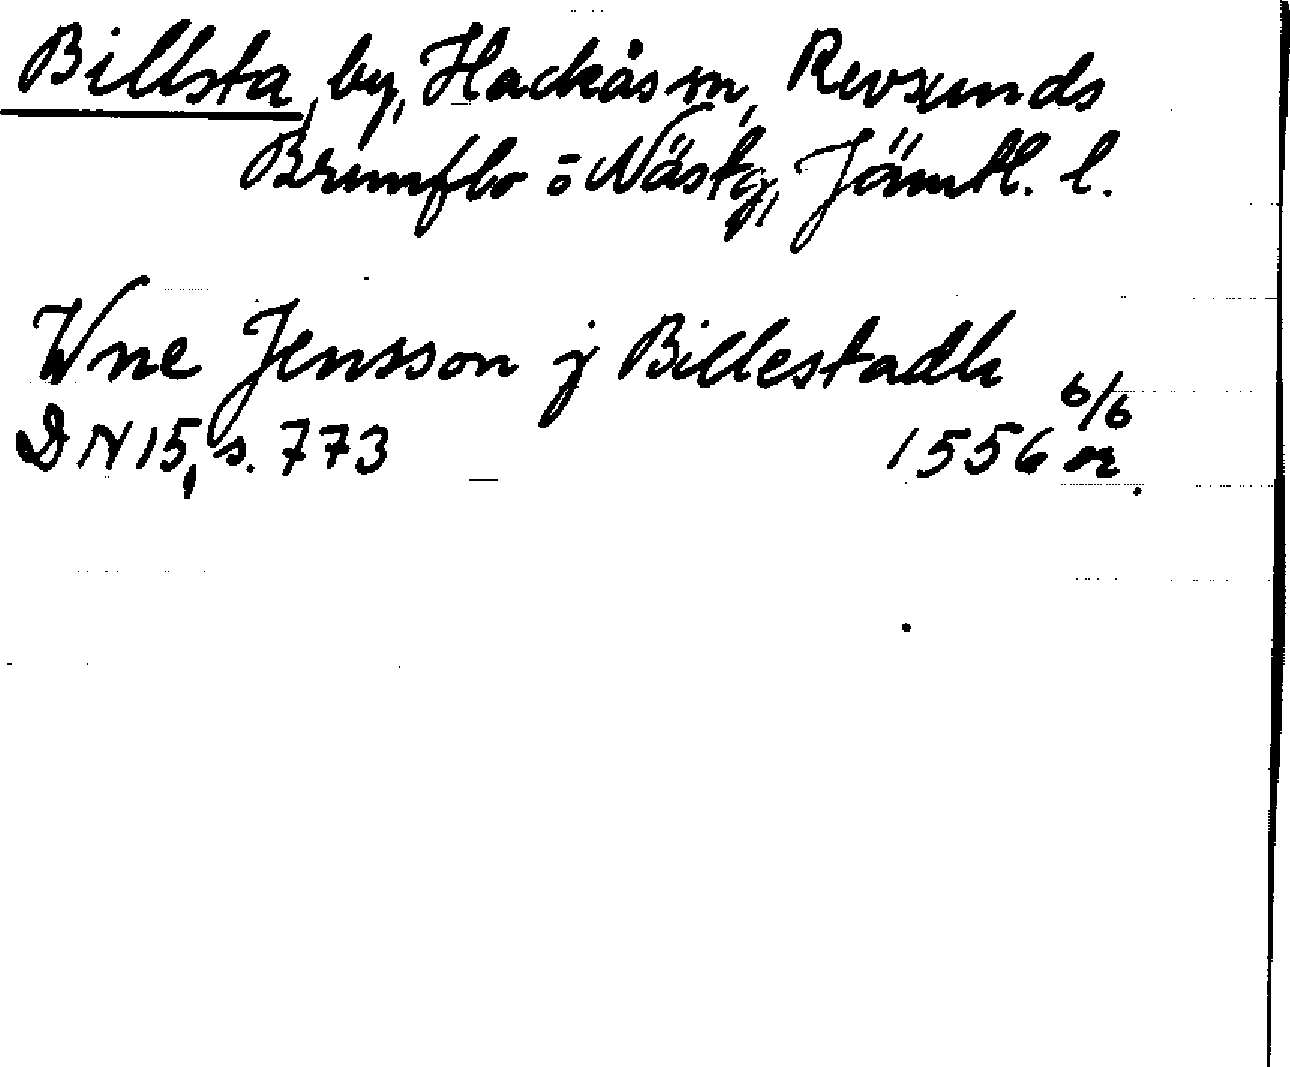 Billsta, by, Hackås sn, Revsunds
Brunflo o Näskg, Jämtl. l.
Wne Jensson j Billestadh
DN 15, s. 773 1556 6/6 or.